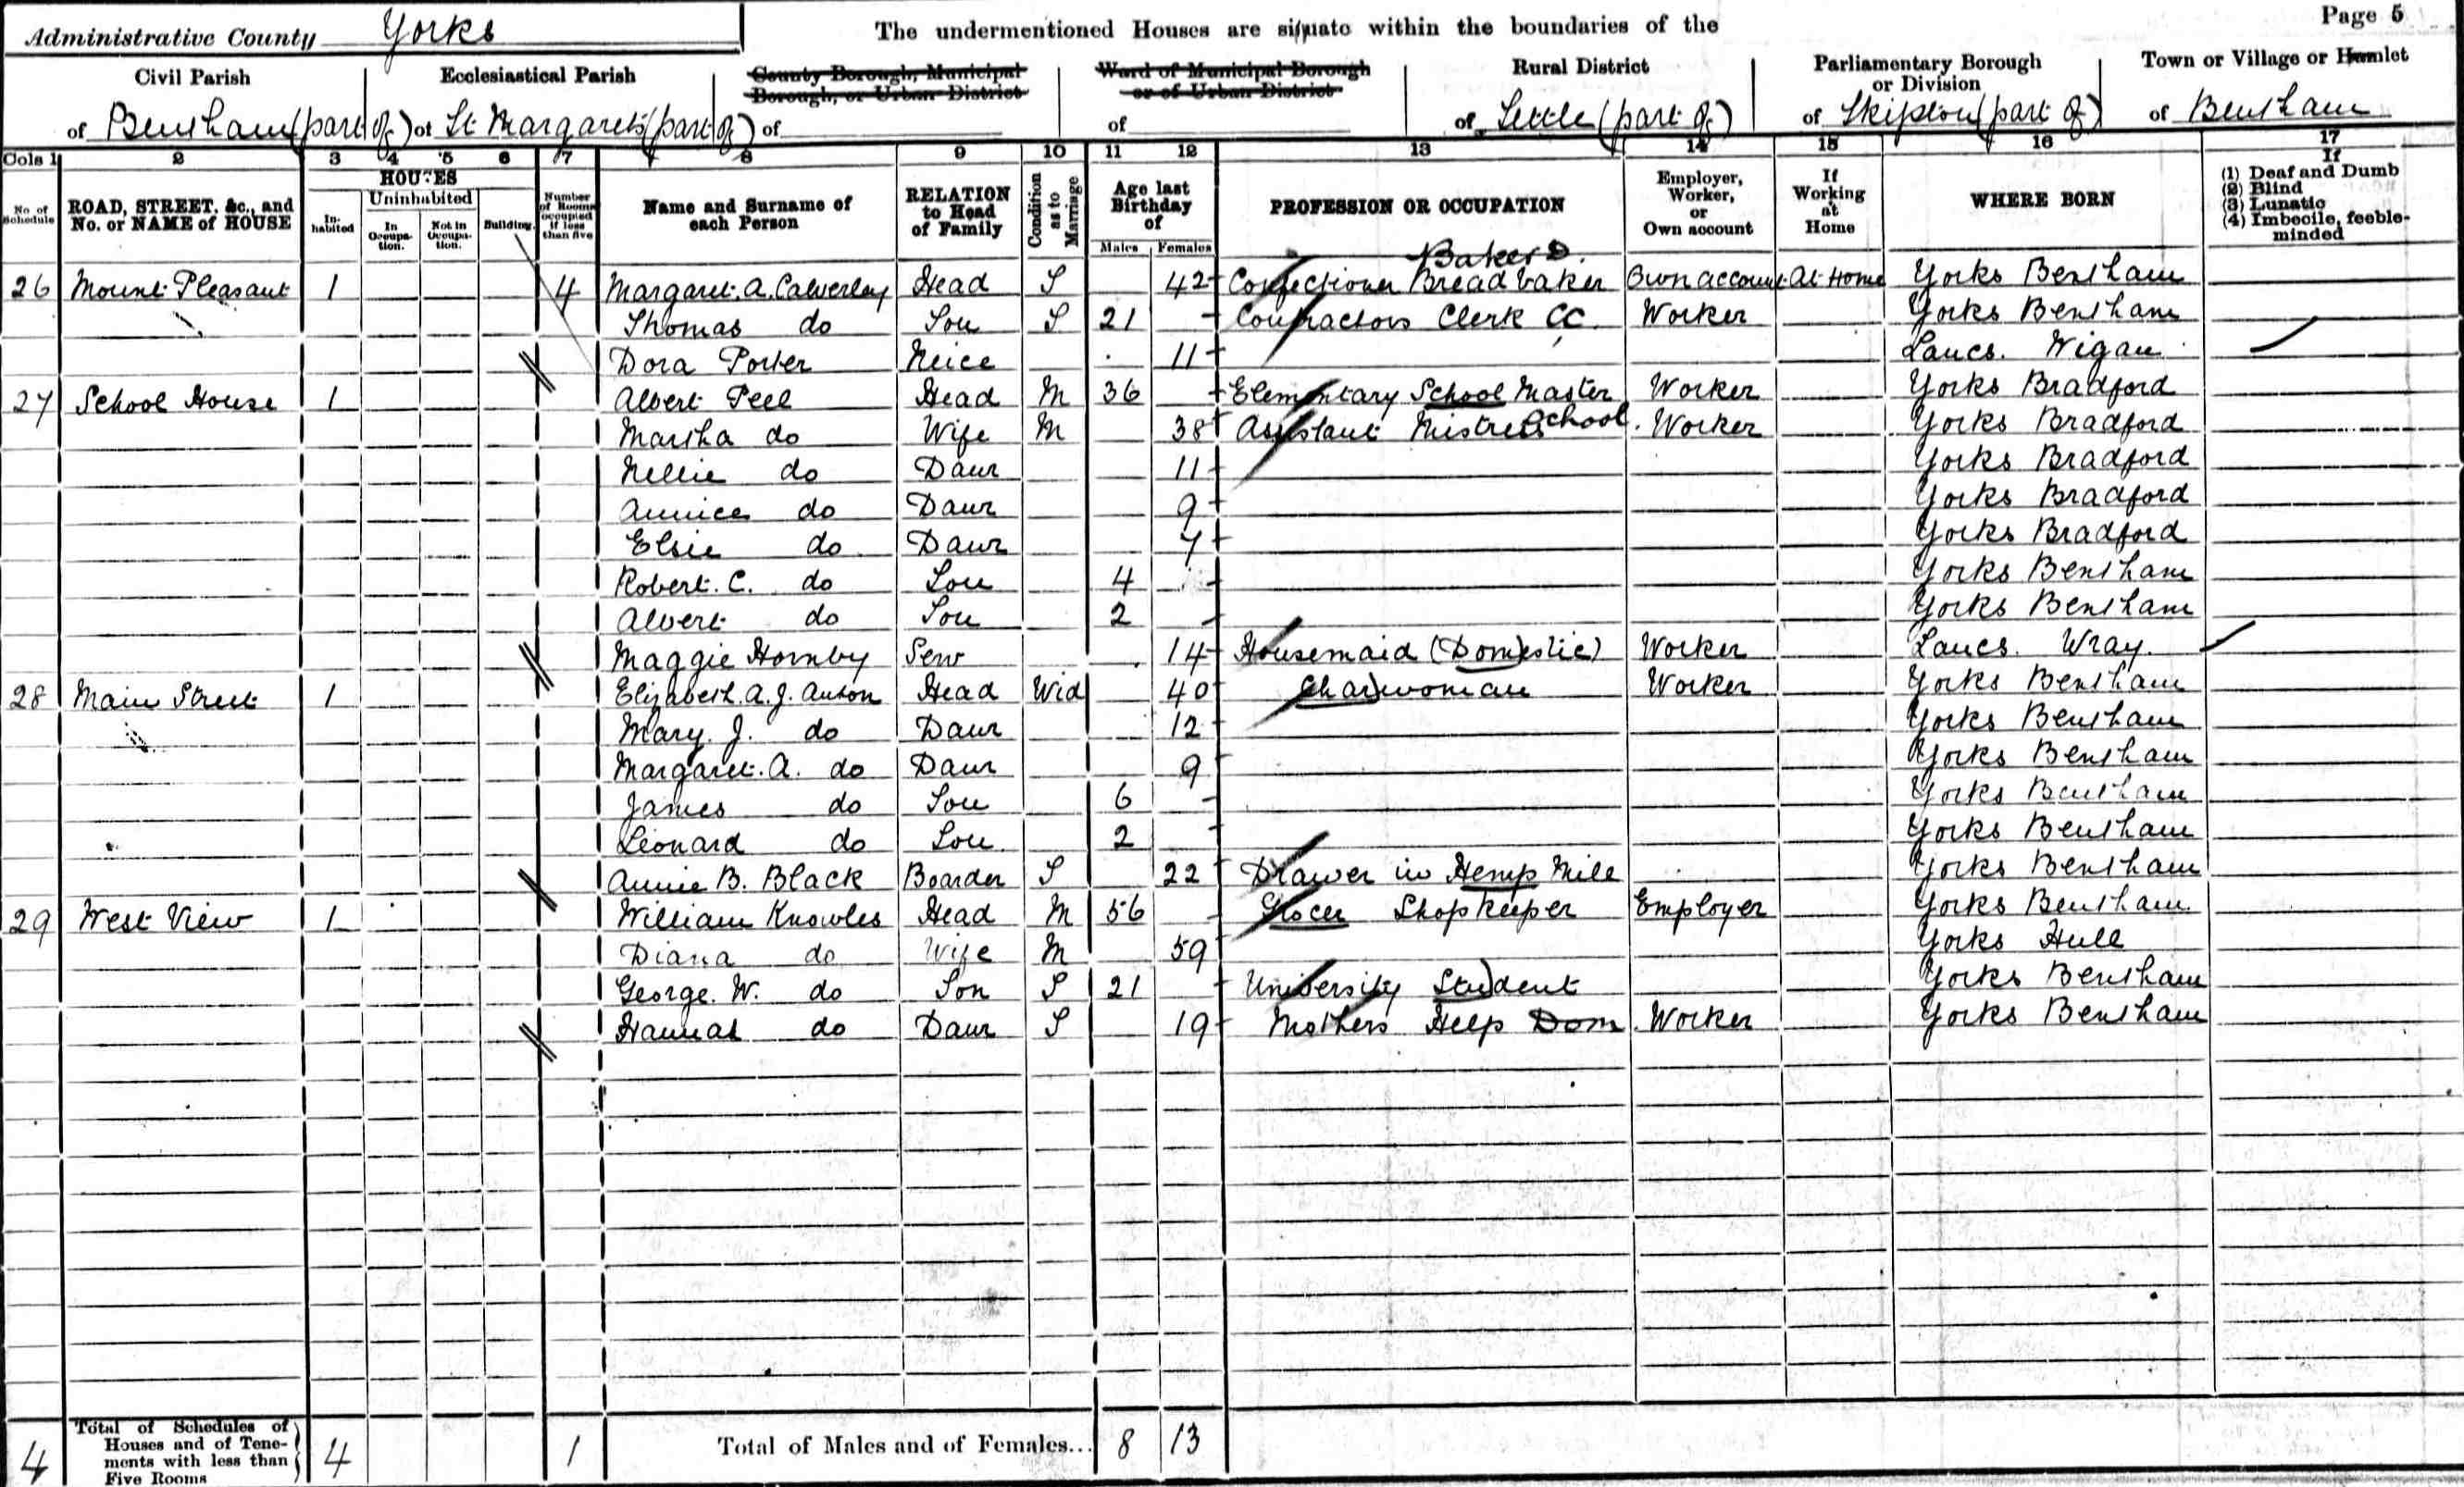 Page 5
Administrative County Yorks
The undermentioned Houses are situate within the boundaries of the
Civil Parish of Bentham (part of)
Ecclesiastical Parish of St Margarets (part of)
County Borough, Municipal Borough, or Urban District of
Ward of Municipal Borough or of Urban District of
Rural District of Settle (part of)
Parliamentary Borough or Division of Skipton (part of)
Town or Village or Hamlet of Bentham
Cols 1 2 3 4 5 6 7 8 9 10 11 12 13 14 15 16 17
No. of Schedule
ROAD, STREET, &c., and No. or NAME of HOUSE
HOUSES
In-habited
Uninhabited
In Occupa-tion.
Not in Occupa-tion.
Building
Number of Rooms occupied if less than five
Name and Surname of each Person
RELATION to Head of Family
Condition as to Marriage
Age last Birthday of
Males Females
PROFESSION OR OCCUPATION
Employer, Worker, or Own account
If Working at Home
WHERE BORN
If (1) Deaf and Dumb (2) Blind (3) Lunatic (4) Imbecile, feeble-minded
Baker D.
26 Mount Pleasant 1 4 Margaret. A. Calverley Head S 42 Confectioner Bread baker Own account At Home Yorks Bentham
Thomas do Son S 21 Contractors Clerk CC Worker Yorks Bentham
Dora Porter Neice 11 Lancs. Wigan
27 School House 1 Albert Peel Head M 36 Elementary School Master Worker Yorks Bradford
Martha do Wife M 38 Assistant Mistress School. Worker Yorks Bradford
Nellie do Daur 11 Yorks Bradford
Annice do Daur 9 Yorks Bradford
Elsie do Daur 7 Yorks Bradford
Robert. C. do Son 4 Yorks Bentham
Albert do Son 2 Yorks Bentham
Maggie Hornby Serv 14 Housemaid (Domestic) Worker Lancs. Wray
28 Main Street 1 Elizabeth. A. J. Head Wid 40 Charwoman Worker Yorks Bentham
Mary. J. do Daur 12 Yorks Bentham
Margaret. A. do Daur 9 Yorks Bentham
James do Son 6 Yorks Bentham
Leonard do Son 2 Yorks Bentham
Annie B. Black Boarder S 22 Drawer in Hemp Mill Yorks Bentham
29 West View 1 William Knowles Head M 56 Grocer Shopkeeper Employer Yorks Bentham
Diana do Wife M 59 Yorks Hull
George. W. do Son S 21 University Student Yorks Bentham
Hannah do Daur S 19 Mothers Help Dom Worker Yorks Bentham
4 Total of Schedules of Houses and of Tene-ments with less than Five Rooms 4 1 Total of Males and of Females... 8 13